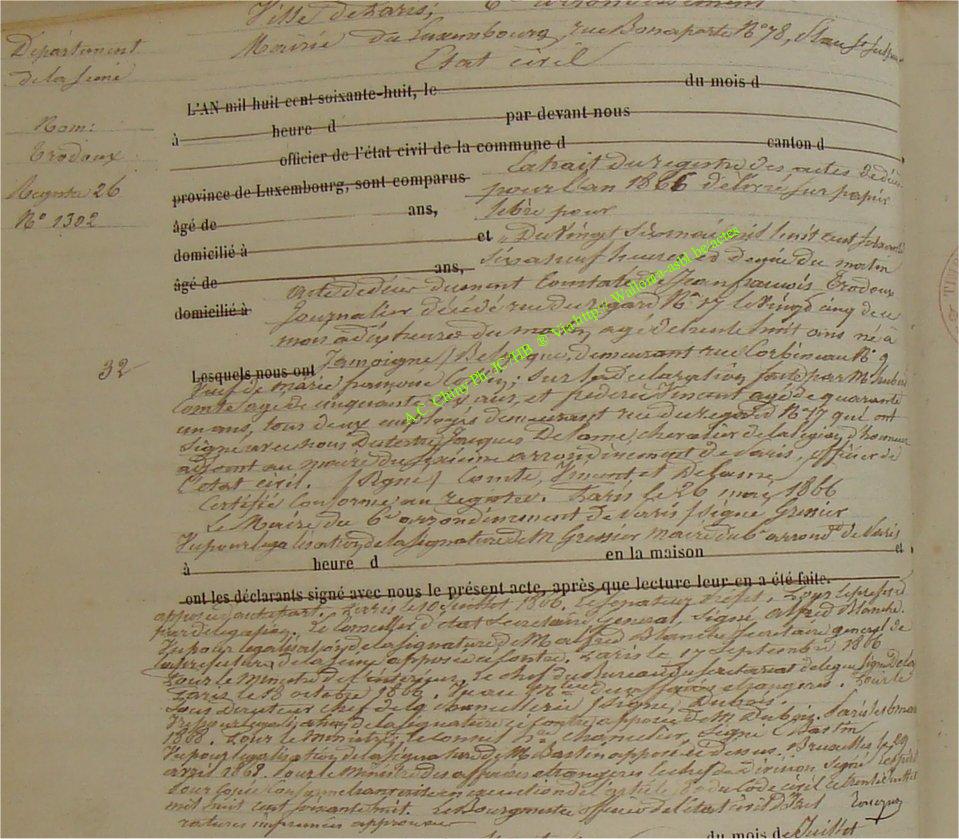 Ville de Paris, 6e arrondissement
Mairie du Luxembourg, rue Bonaparte No 78,
Etat civil
Département
de la Seine
Nom:
Trodoux
Registre 26
No 1302
32
L'AN mil huit cent soixante-huit, le du mois d
à heure d par devant nous
officier de l'état civil de la commune d canton d
Extrait du registre des actes de décès
province de Luxembourg, sont comparus pour l'an 1866 délivré sur papier
âgé de ans, libre pour
domicilié à et Du vingt six mai mil huit cent soixante
six à neuf heures et demie du matin
âgé de ans,
acte de décès dument constaté de Jean françois Trodoux
domicilié à journalier décédé rue du regard No 17 le vingt cinq de ce
mois à dix heures du matin, agé de trente huit ans né à
Jamoigne (Belgique, demeurant rue Corbineau No 9
Lesquels nous ont
veuf de marie françoise sur la déclaration faite par M.
Comte agé de cinquante ans, et Vincent agé de quarante
un ans, tous deux employés demeurant rue du regard No 17 qui ont
signé avec nous Jacques Delame, chevalier de la légion d'honneur
adjoint au maire du sixième arrondissement de Paris, officier de
l'état civil. (Signé) Comte, Vincent et Delame
Certifié conforme au registre. Paris le 26 mai 1866
Le Maire du 6e arrondissement de Paris (signé Gressier
Vu pour legalisation de la signature de M Gressier maire du 6e arrondt de Paris
à heure d en la maison et
ont les déclarants signé avec nous le présent acte, après que lecture leur en a été faite.
apposée autre part. Paris le 10 juillet 1866. Le senateur Préfet. Pour le préfet et
par délégation. Le Conseiller d'état Secretaire General, Signé, alfred Blanche.
Vu pour legalisation de la signature de M alfred Blanche Secretaire general de
la préfecture de la Seine apposée ci contre. Paris le 17 Septembre 1866
Pour le Ministre de l'intérieur, le chef du Bureau du Secretariat delegué Signé
Paris le 18 octobre 1866. des affaires etrangères. Pour le
Sous Directeur chef de la chancellerie (signé, Dubois.
Vu pour legalisation de la signature ci contre apposée de M Dubois. Paris le 6 mars
1868. Pour le Ministre, le Consul hre chancelier, Signé Bastin
Vu pour legalisation de la signature de M Bastin apposée ci dessus. Bruxelles le 29
avril 1868. Pour le Ministre des affaires etrangères le chef de division Signé
Pour copie conforme en execution de l'article 80 du Code civil le trente juillet
mil huit cent soixante huit. Le Bourgmestre officier de l'état civil
ratures imprimées approuvées
du mois de Juillet
A.C. Chiny Ph. JC-HB @ Via http://Wallonia-asbl.be/actes